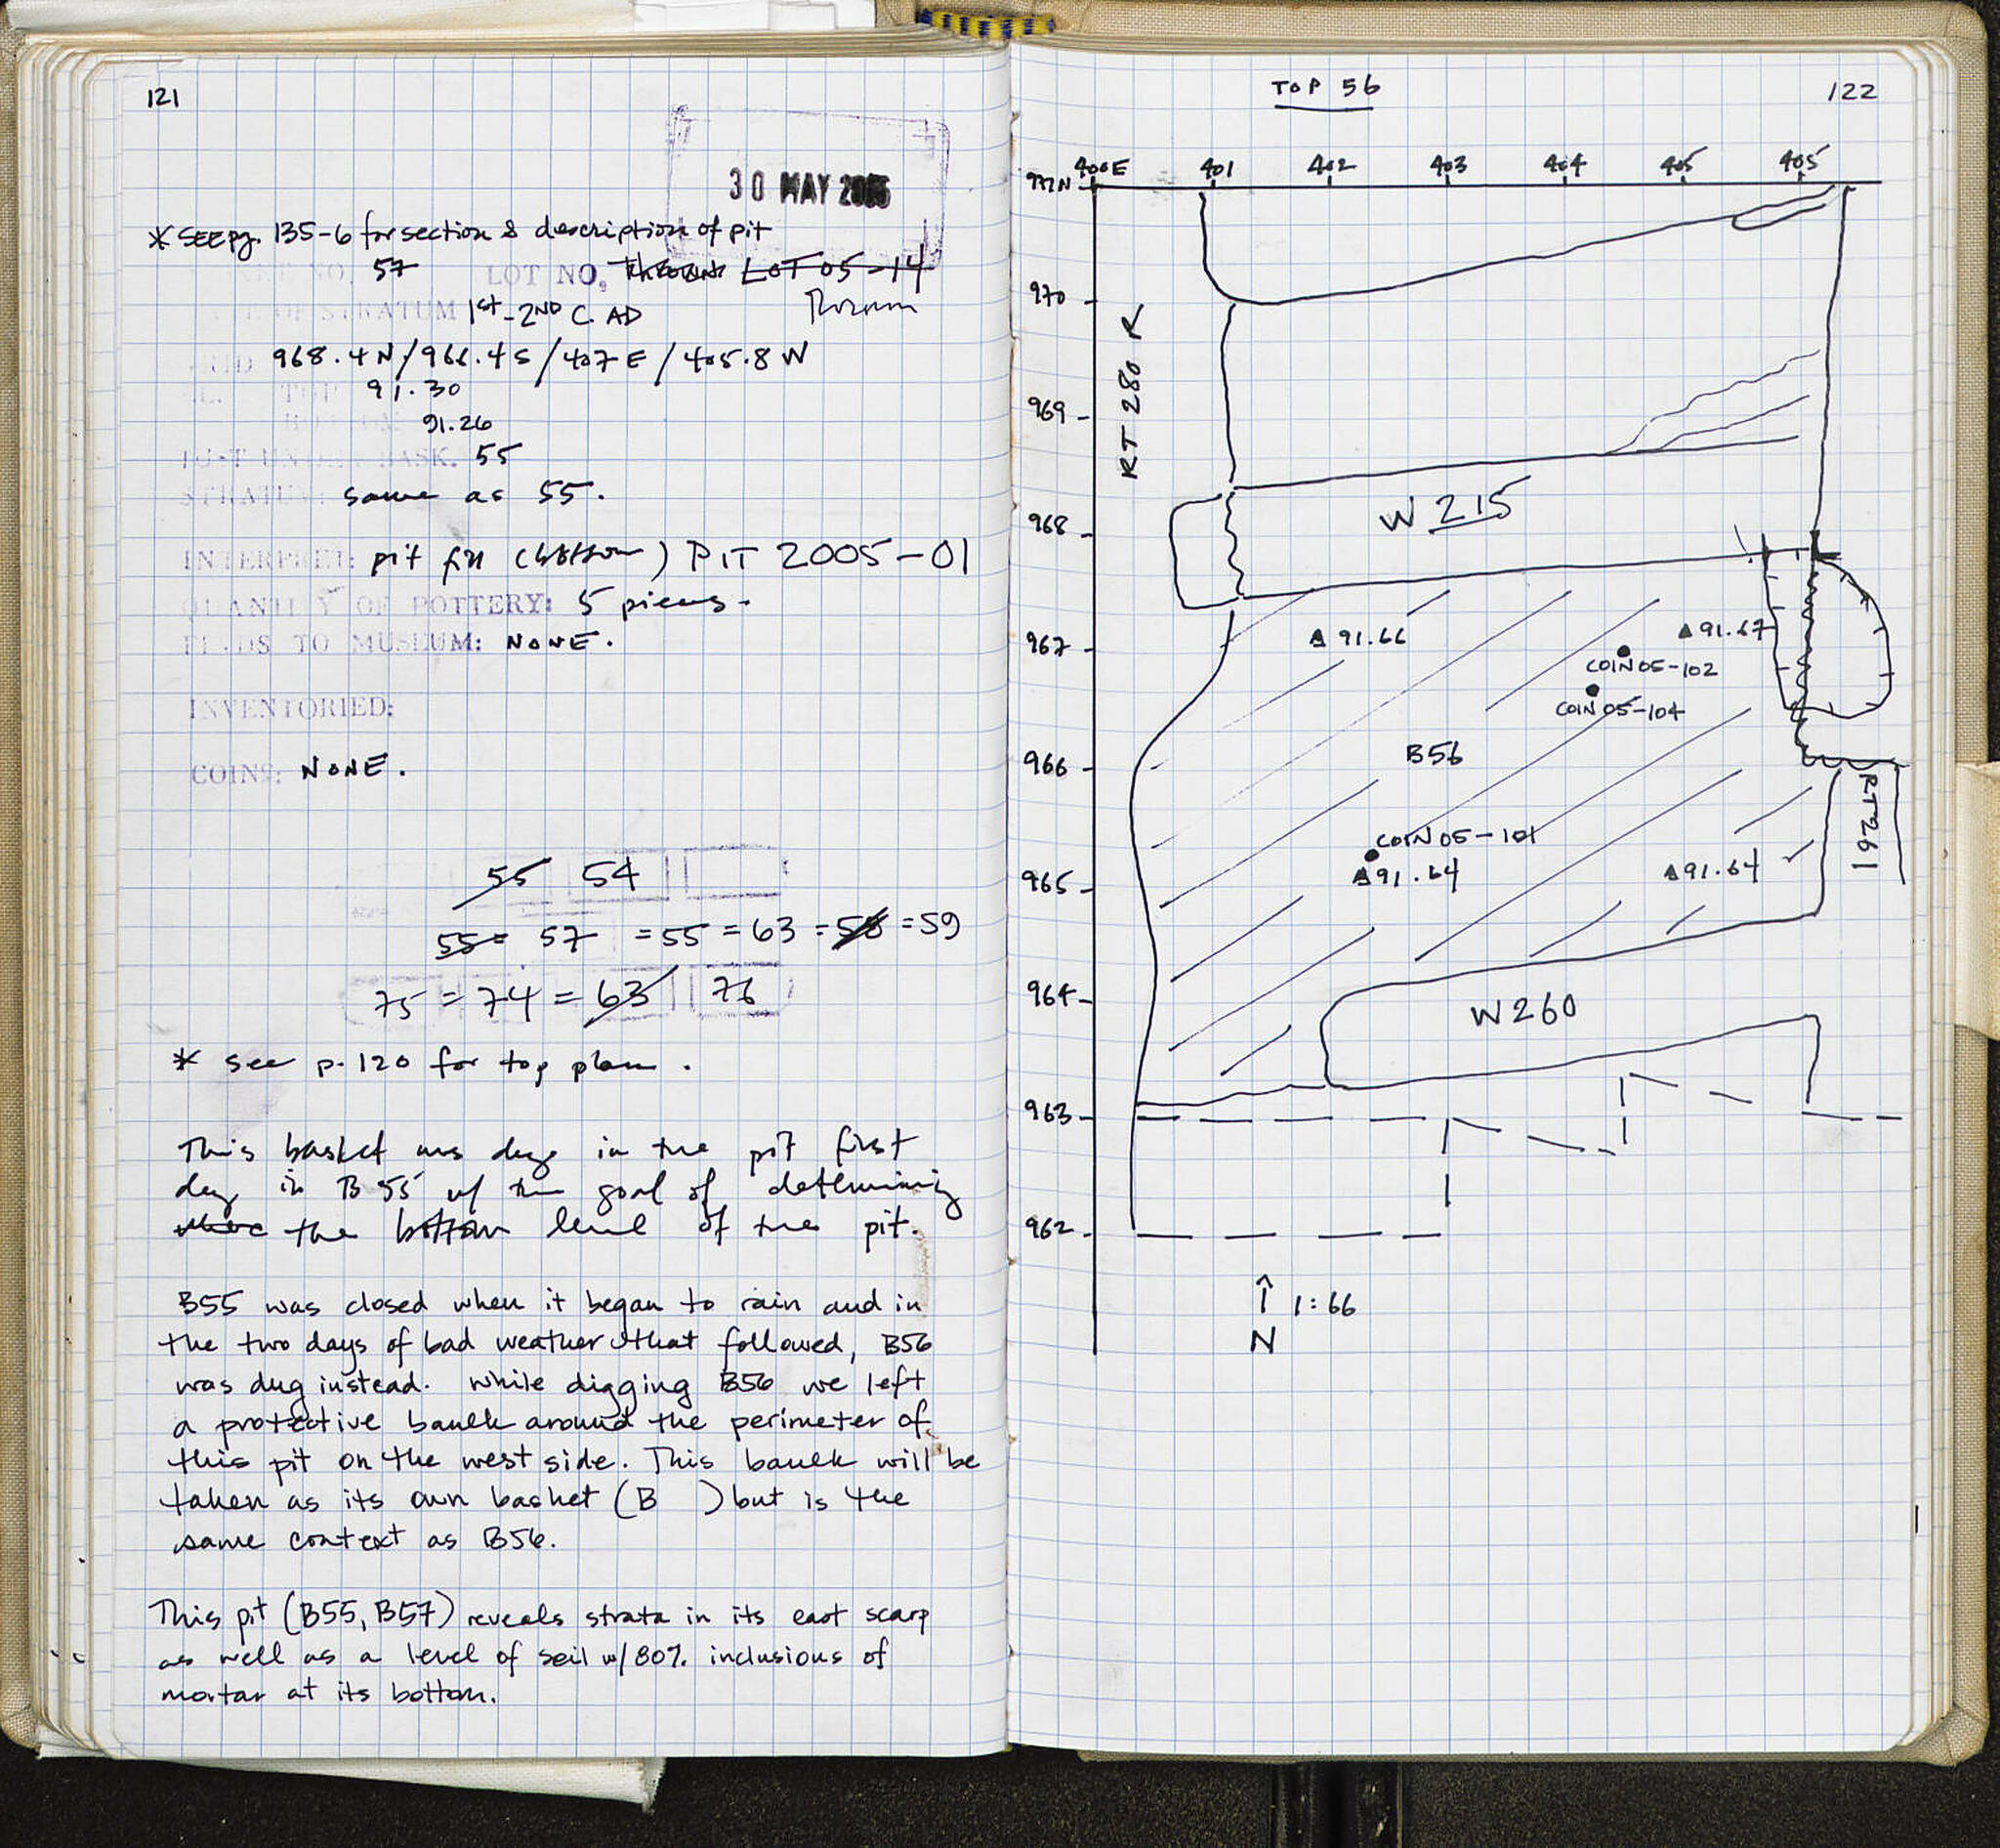 121
30 MAY 2005
* SEE pg. 135-6 for section & description of pit
57 LOT NO. LOT 05-14
STRATUM 1st-2ND C. AD
968.4 N / 966.4 S / 407 E / 405.8 W
TOP 91.30
91.26
JUST UNDER BASK. 55
STRATUM: same as 55.
INTERPRET: pit fill (bottom) PIT 2005-01
QUANTITY OF POTTERY: 5 pieces.
FINDS TO MUSEUM: NONE.
INVENTORIED:
COINS: NONE.
55 54
55 = 57 = 55 = 63 = 58 = 59
75 = 74 = 63 76
* see p. 120 for top plan.
This basket was dug in the pit first
dug in B 55 w/ the goal of determining
where the bottom level of the pit.
B55 was closed when it began to rain and in
the two days of bad weather that followed, B56
was dug instead. While digging B56 we left
a protective baulk around the perimeter of
this pit on the west side. This baulk will be
taken as its own basket (B ) but is the
same context as B56.
This pit (B55, B57) reveals strata in its east scarp
as well as a level of soil w/ 80% inclusions of
mortar at its bottom.
TOP 56
122
400E 401 402 403 404 405 405
971N
970
969
968
967
966
965
964
963
962
RT 280 R
W 215
91.66
91.67
COIN 05-102
COIN 05-104
B56
COIN 05-101
91.64
91.64
RT 261
W 260
1:66
N